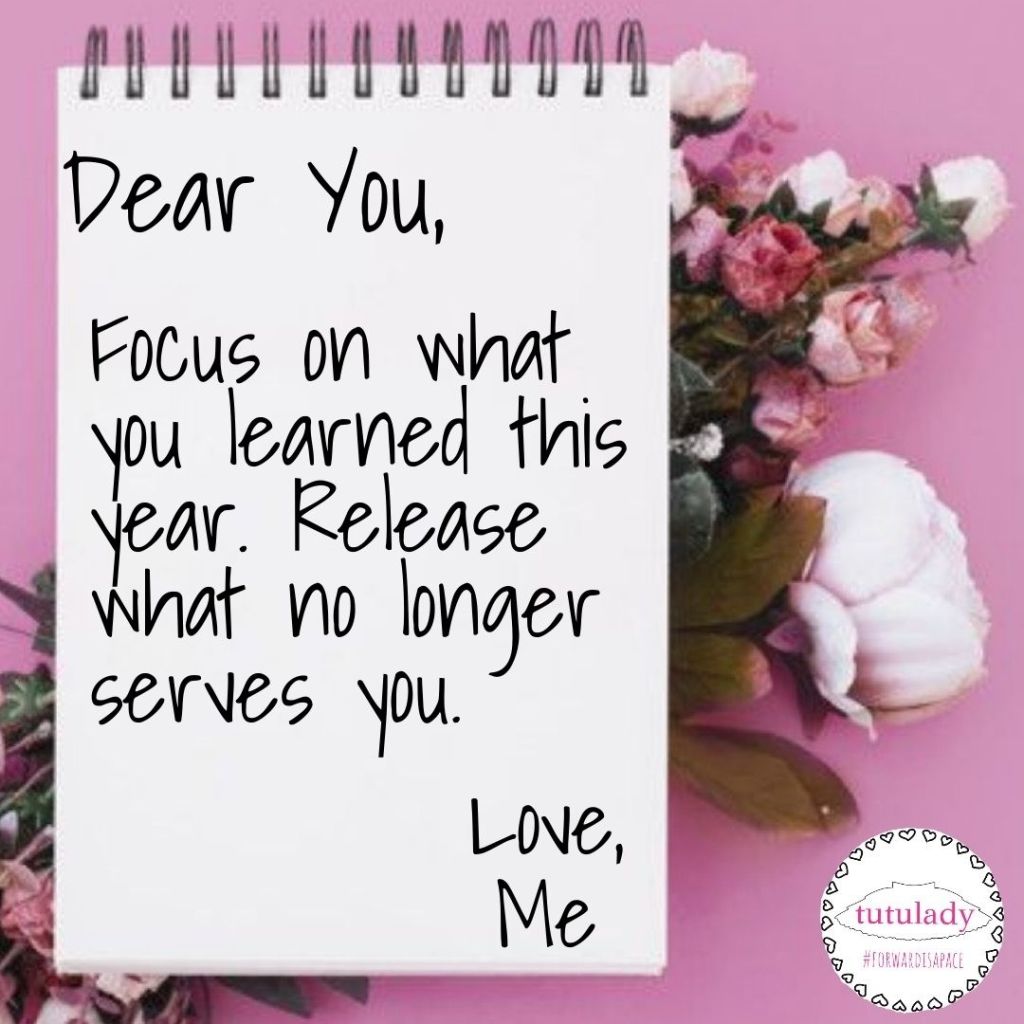 Dear You,
Focus on what
you learned this
year. Release
what no longer
serves you.
Love,
Me
tutulady
#FORWARDISAPACE